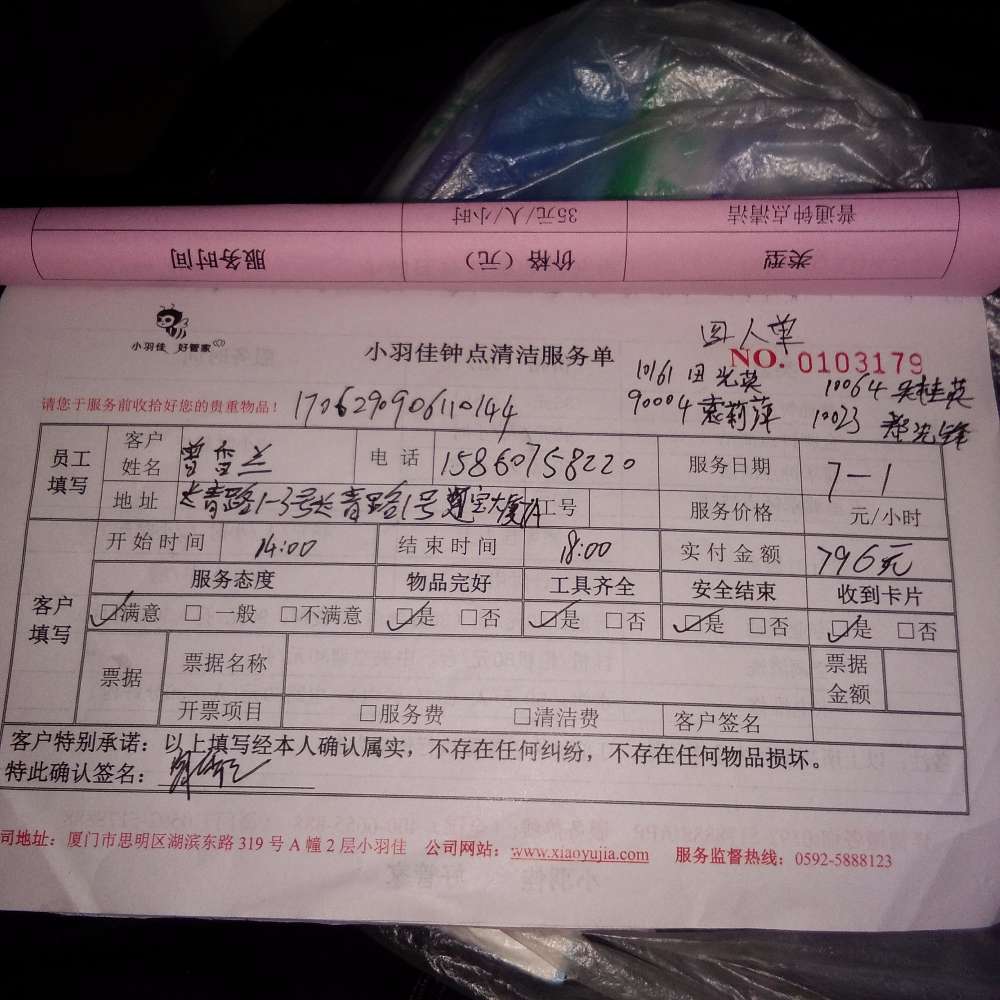 普通钟点清洁 35元/人/小时
类型 价格（元） 服务时间
小羽佳 好管家
小羽佳钟点清洁服务单
四人单
NO. 0103179
请您于服务前收拾好您的贵重物品！ 1706290906110144
10161 田光英 10064 吴桂英
90004 袁莉萍 10023 郑先锋
员工填写 客户姓名 曾雪兰 电话 15860758220 服务日期 7-1
地址 长青路1-3号长青路1号 宝大厦 工号 服务价格 元/小时
客户填写 开始时间 14:00 结束时间 18:00 实付金额 796元
服务态度 物品完好 工具齐全 安全结束 收到卡片
☑满意 □一般 □不满意 ☑是 □否 ☑是 □否 ☑是 □否 ☑是 □否
票据 票据名称 票据金额
开票项目 □服务费 □清洁费 客户签名
客户特别承诺：以上填写经本人确认属实，不存在任何纠纷，不存在任何物品损坏。
特此确认签名：
司地址：厦门市思明区湖滨东路319号A幢2层小羽佳 公司网站：www.xiaoyujia.com 服务监督热线：0592-5888123